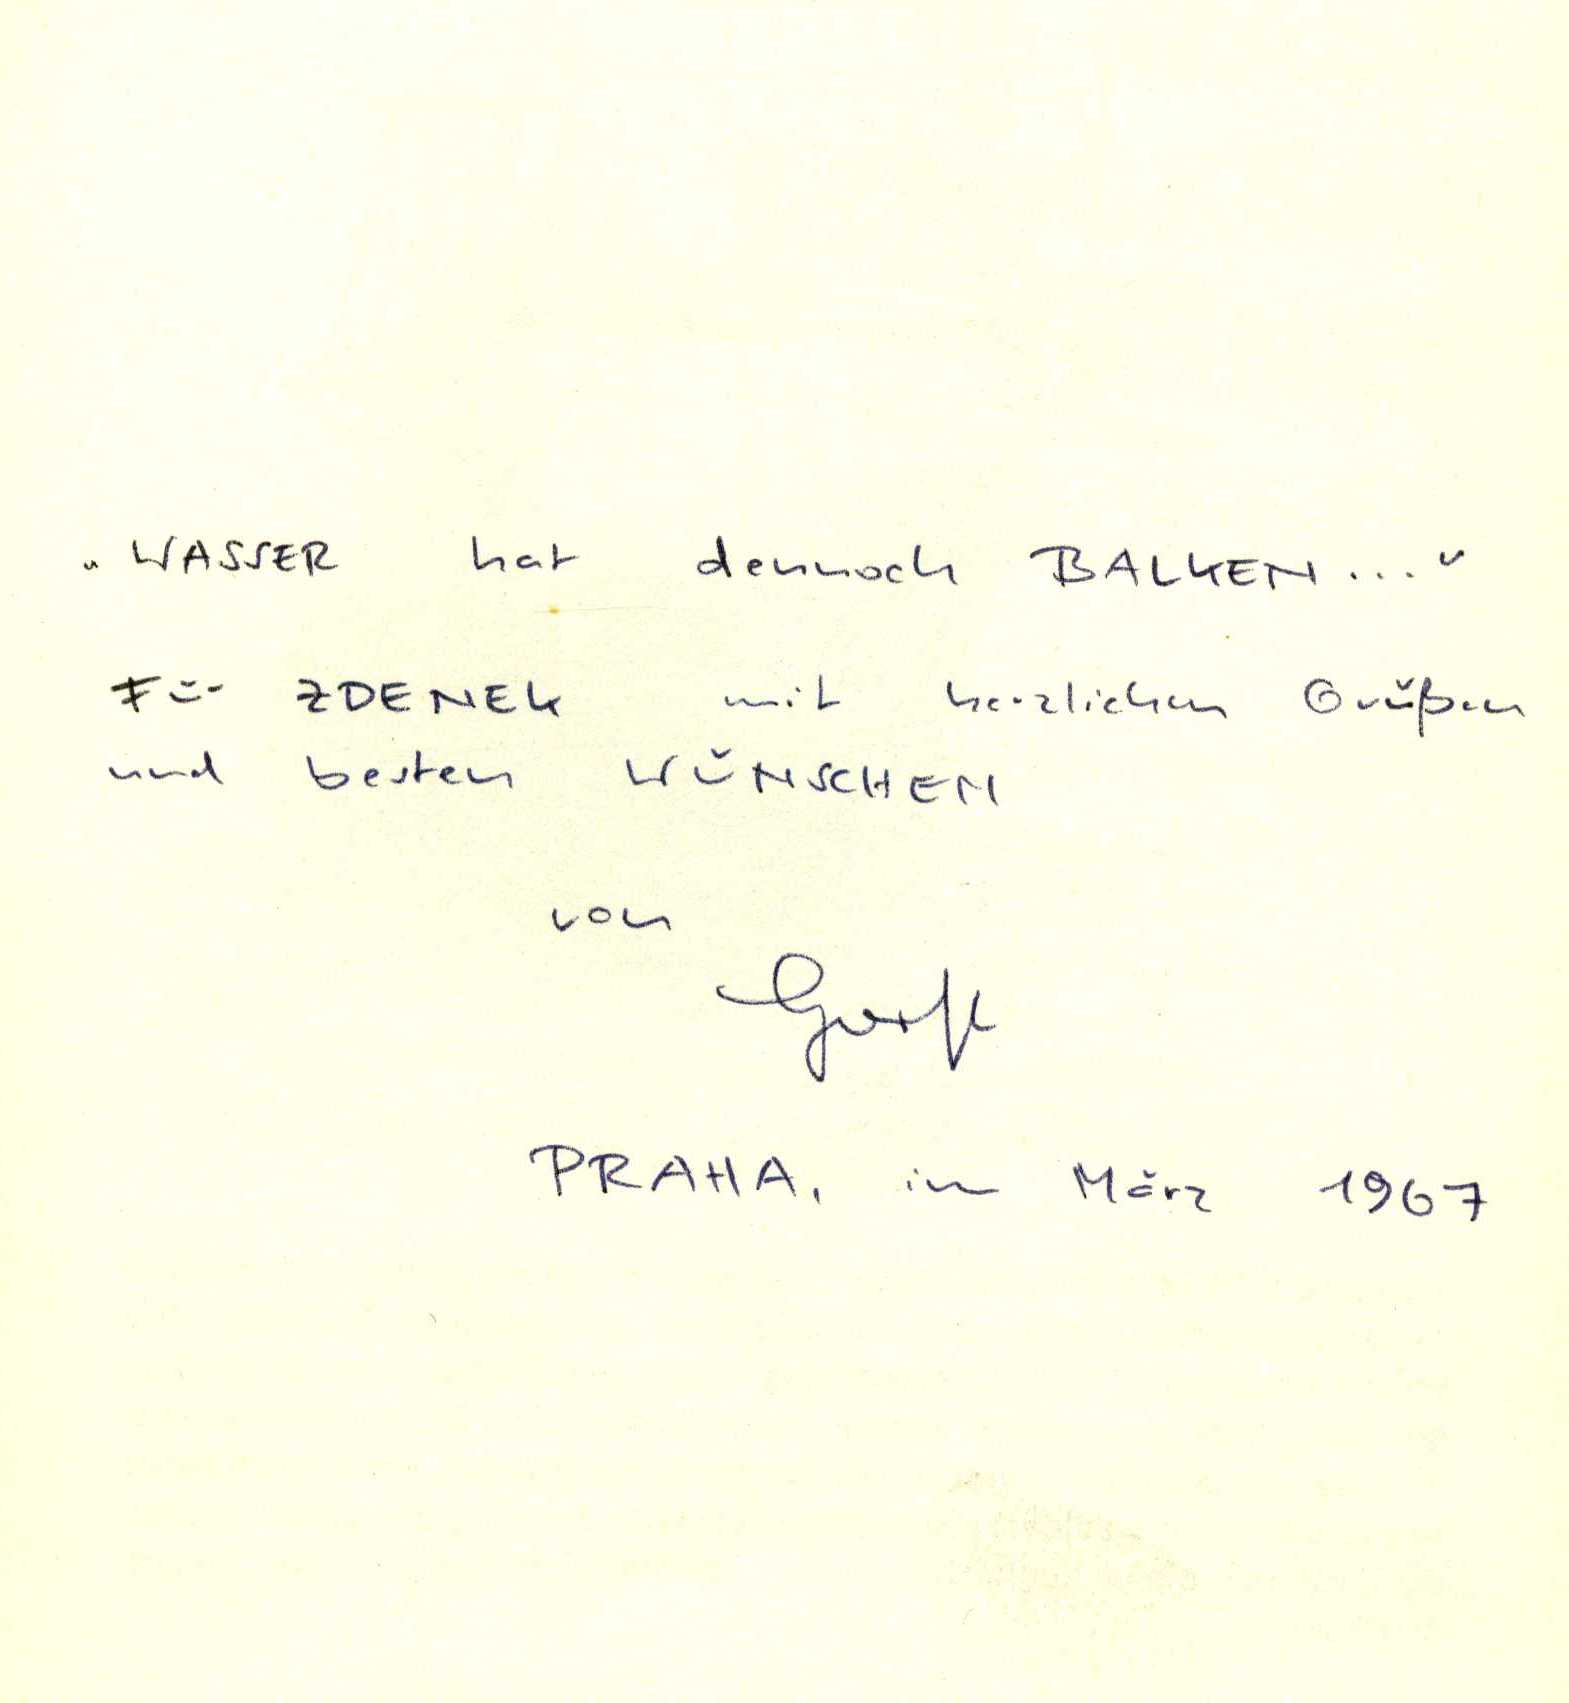 „WASSER hat dennoch BALKEN..."
Für ZDENEK mit herzlichen Grüßen
und besten WÜNSCHEN
von
PRAHA, im März 1967